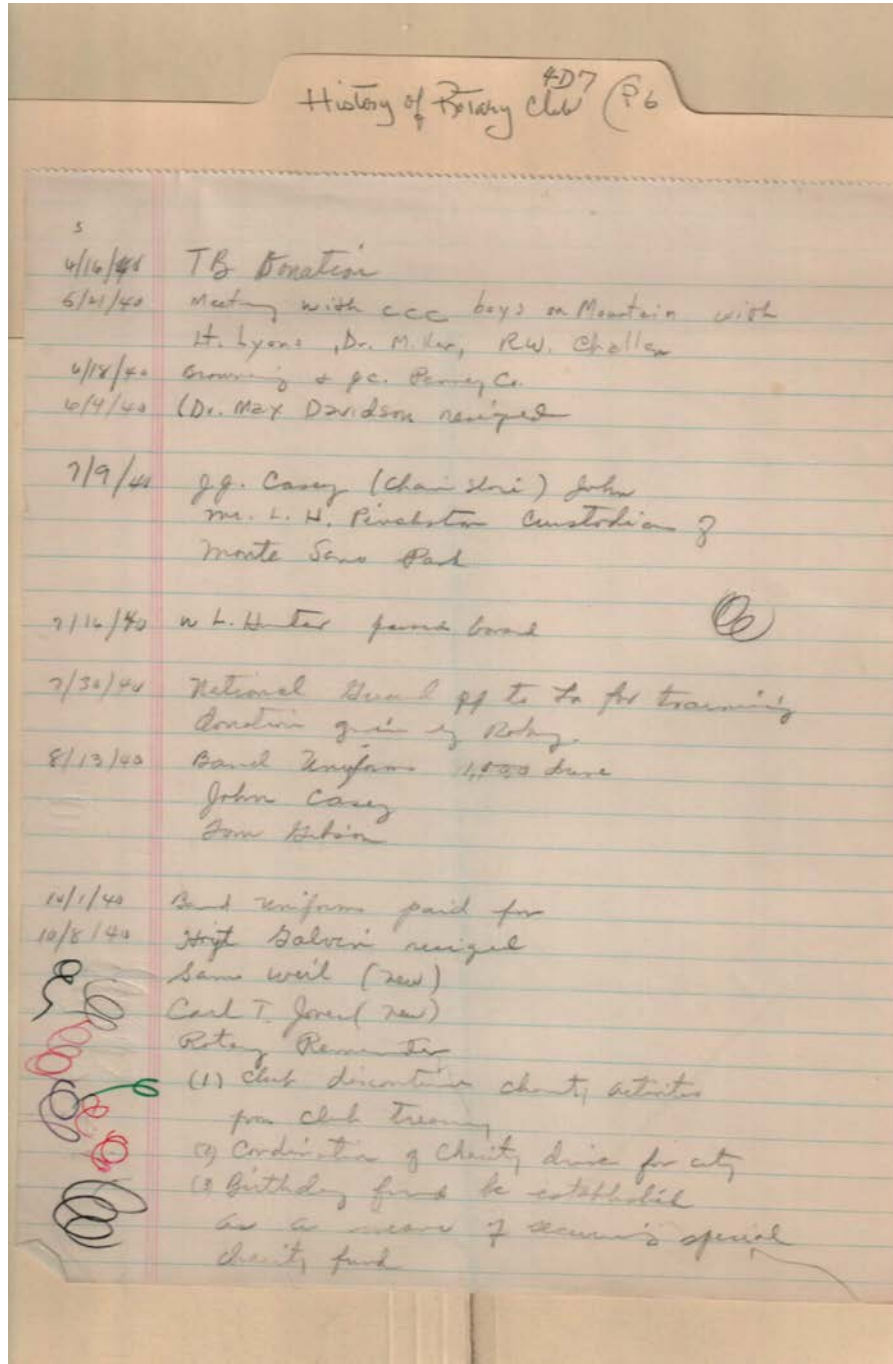 4D7
History of Rotary Club (P6
5
4/16/40 TB Donation
5/21/40 Meeting with ccc boys on Mountain with
H. Lyons, Dr. Miller, R.W. Challen
6/18/40 Browning & J.C. Penney Co.
6/4/40 (Dr. Max Davidson resigned
7/9/40 J.J. Casey (Chain Store) John
Mr. L. H. Pinchston Custodian of
Monte Sano Park
7/16/40 W L. Hunter board
7/30/40 National Guard off to La for training
donation given by Rotary.
8/13/40 Band Uniforms drive
John Casey
Tom
10/1/40 Band uniforms paid for
10/8/40 Hoyt Galvin resigned
Sam Weil (new)
Carl T. Jones (new)
Rotary
(1) Club discontinue charity activities
from club treasury
(2) Cordination of Charity drive for city
(3 Birthday fund be established
as a means of securing special
charity fund